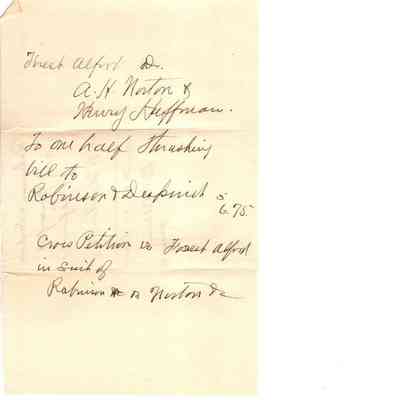 Forest Alford Dr.
A. H. Norton &
Henry Huffman.
To one half Thrashing
bill to
Robinson &
6.75
Cross Petition vs Forest Alford
in Suit of
Robinson vs Norton &c